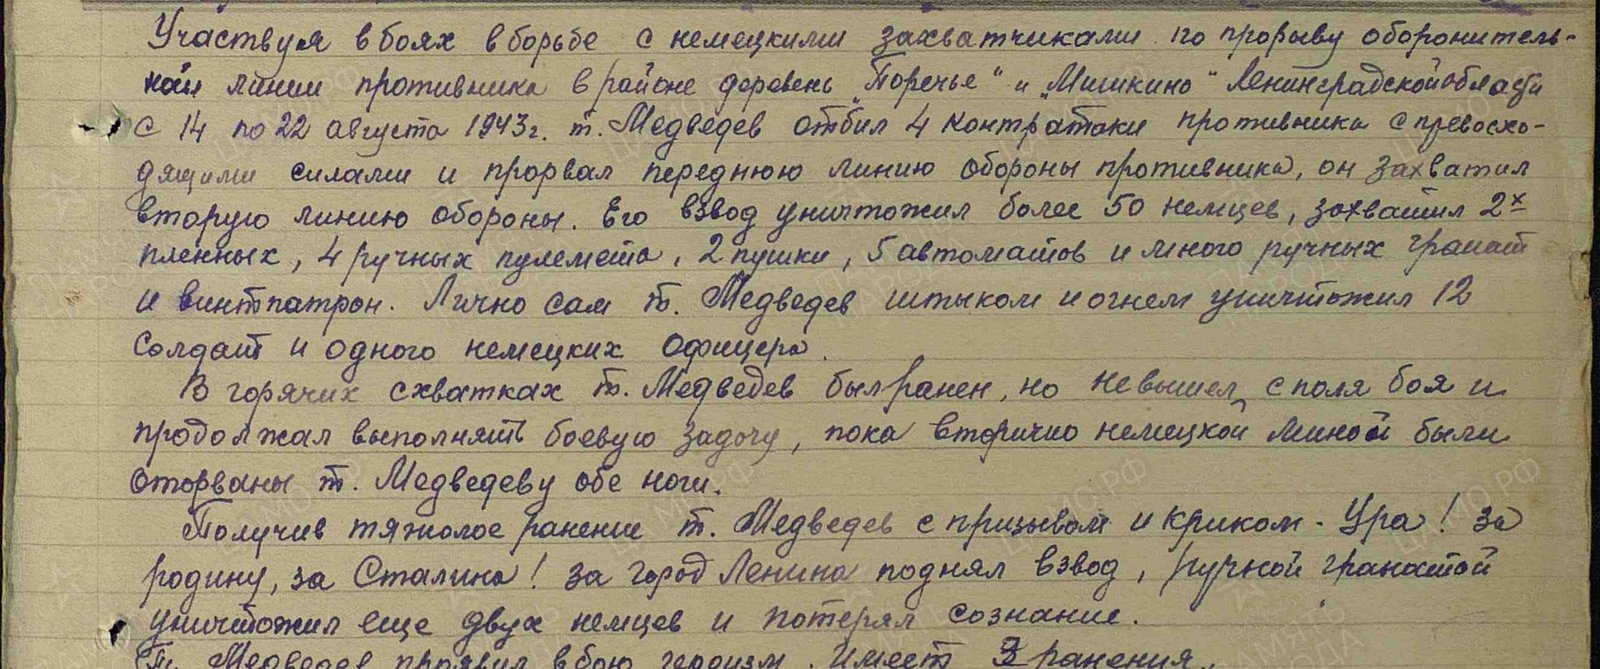 Участвуя в боях в борьбе с немецкими захватчиками по прорыву оборонитель-
ной линии противника в районе деревень "Поречье" и "Мишкино" Ленинградской области
с 14 по 22 августа 1943г. т. Медведев отбил 4 контратаки противника с превосхо-
дящими силами и прорвал переднюю линию обороны противника, он захватил
вторую линию обороны. Его взвод уничтожил более 50 немцев, захватил 2х
пленных, 4 ручных пулемета, 2 пушки, 5 автоматов и много ручных гранат
и винтпатрон. Лично сам т. Медведев штыком и огнем уничтожил 12
солдат и одного немецких офицера.
В горячих схватках т. Медведев был ранен, но не вышел с поля боя и
продолжал выполнять боевую задачу, пока вторично немецкой миной были
оторваны т. Медведеву обе ноги.
Получив тяжолое ранение т. Медведев с призывом и криком - Ура! за
родину, за Сталина! за город Ленина поднял взвод, ручной гранатой
уничтожил еще двух немцев и потерял сознание.
Т. Медведев проявил в бою героизм. Имеет 3 ранения.